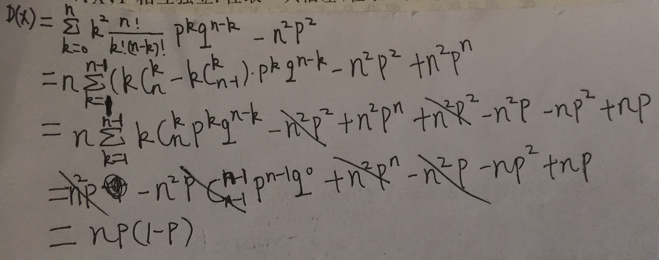 D(X) = \sum_{k=0}^{n} k^2 \frac{n!}{k!(n-k)!} p^k q^{n-k} - n^2p^2
= n \sum_{k=1}^{n-1} (k C_n^k - k C_{n-1}^k) \cdot p^k q^{n-k} - n^2p^2 + n^2p^n
= n \sum_{k=1}^{n-1} k C_n^k p^k q^{n-k} - n^2p^2 + n^2p^n + n^2p^2 - n^2p - np^2 + np
= n^2p - n^2p C_{n-1}^{n-1} p^{n-1} q^0 + n^2p^n - n^2p - np^2 + np
= np(1-p)